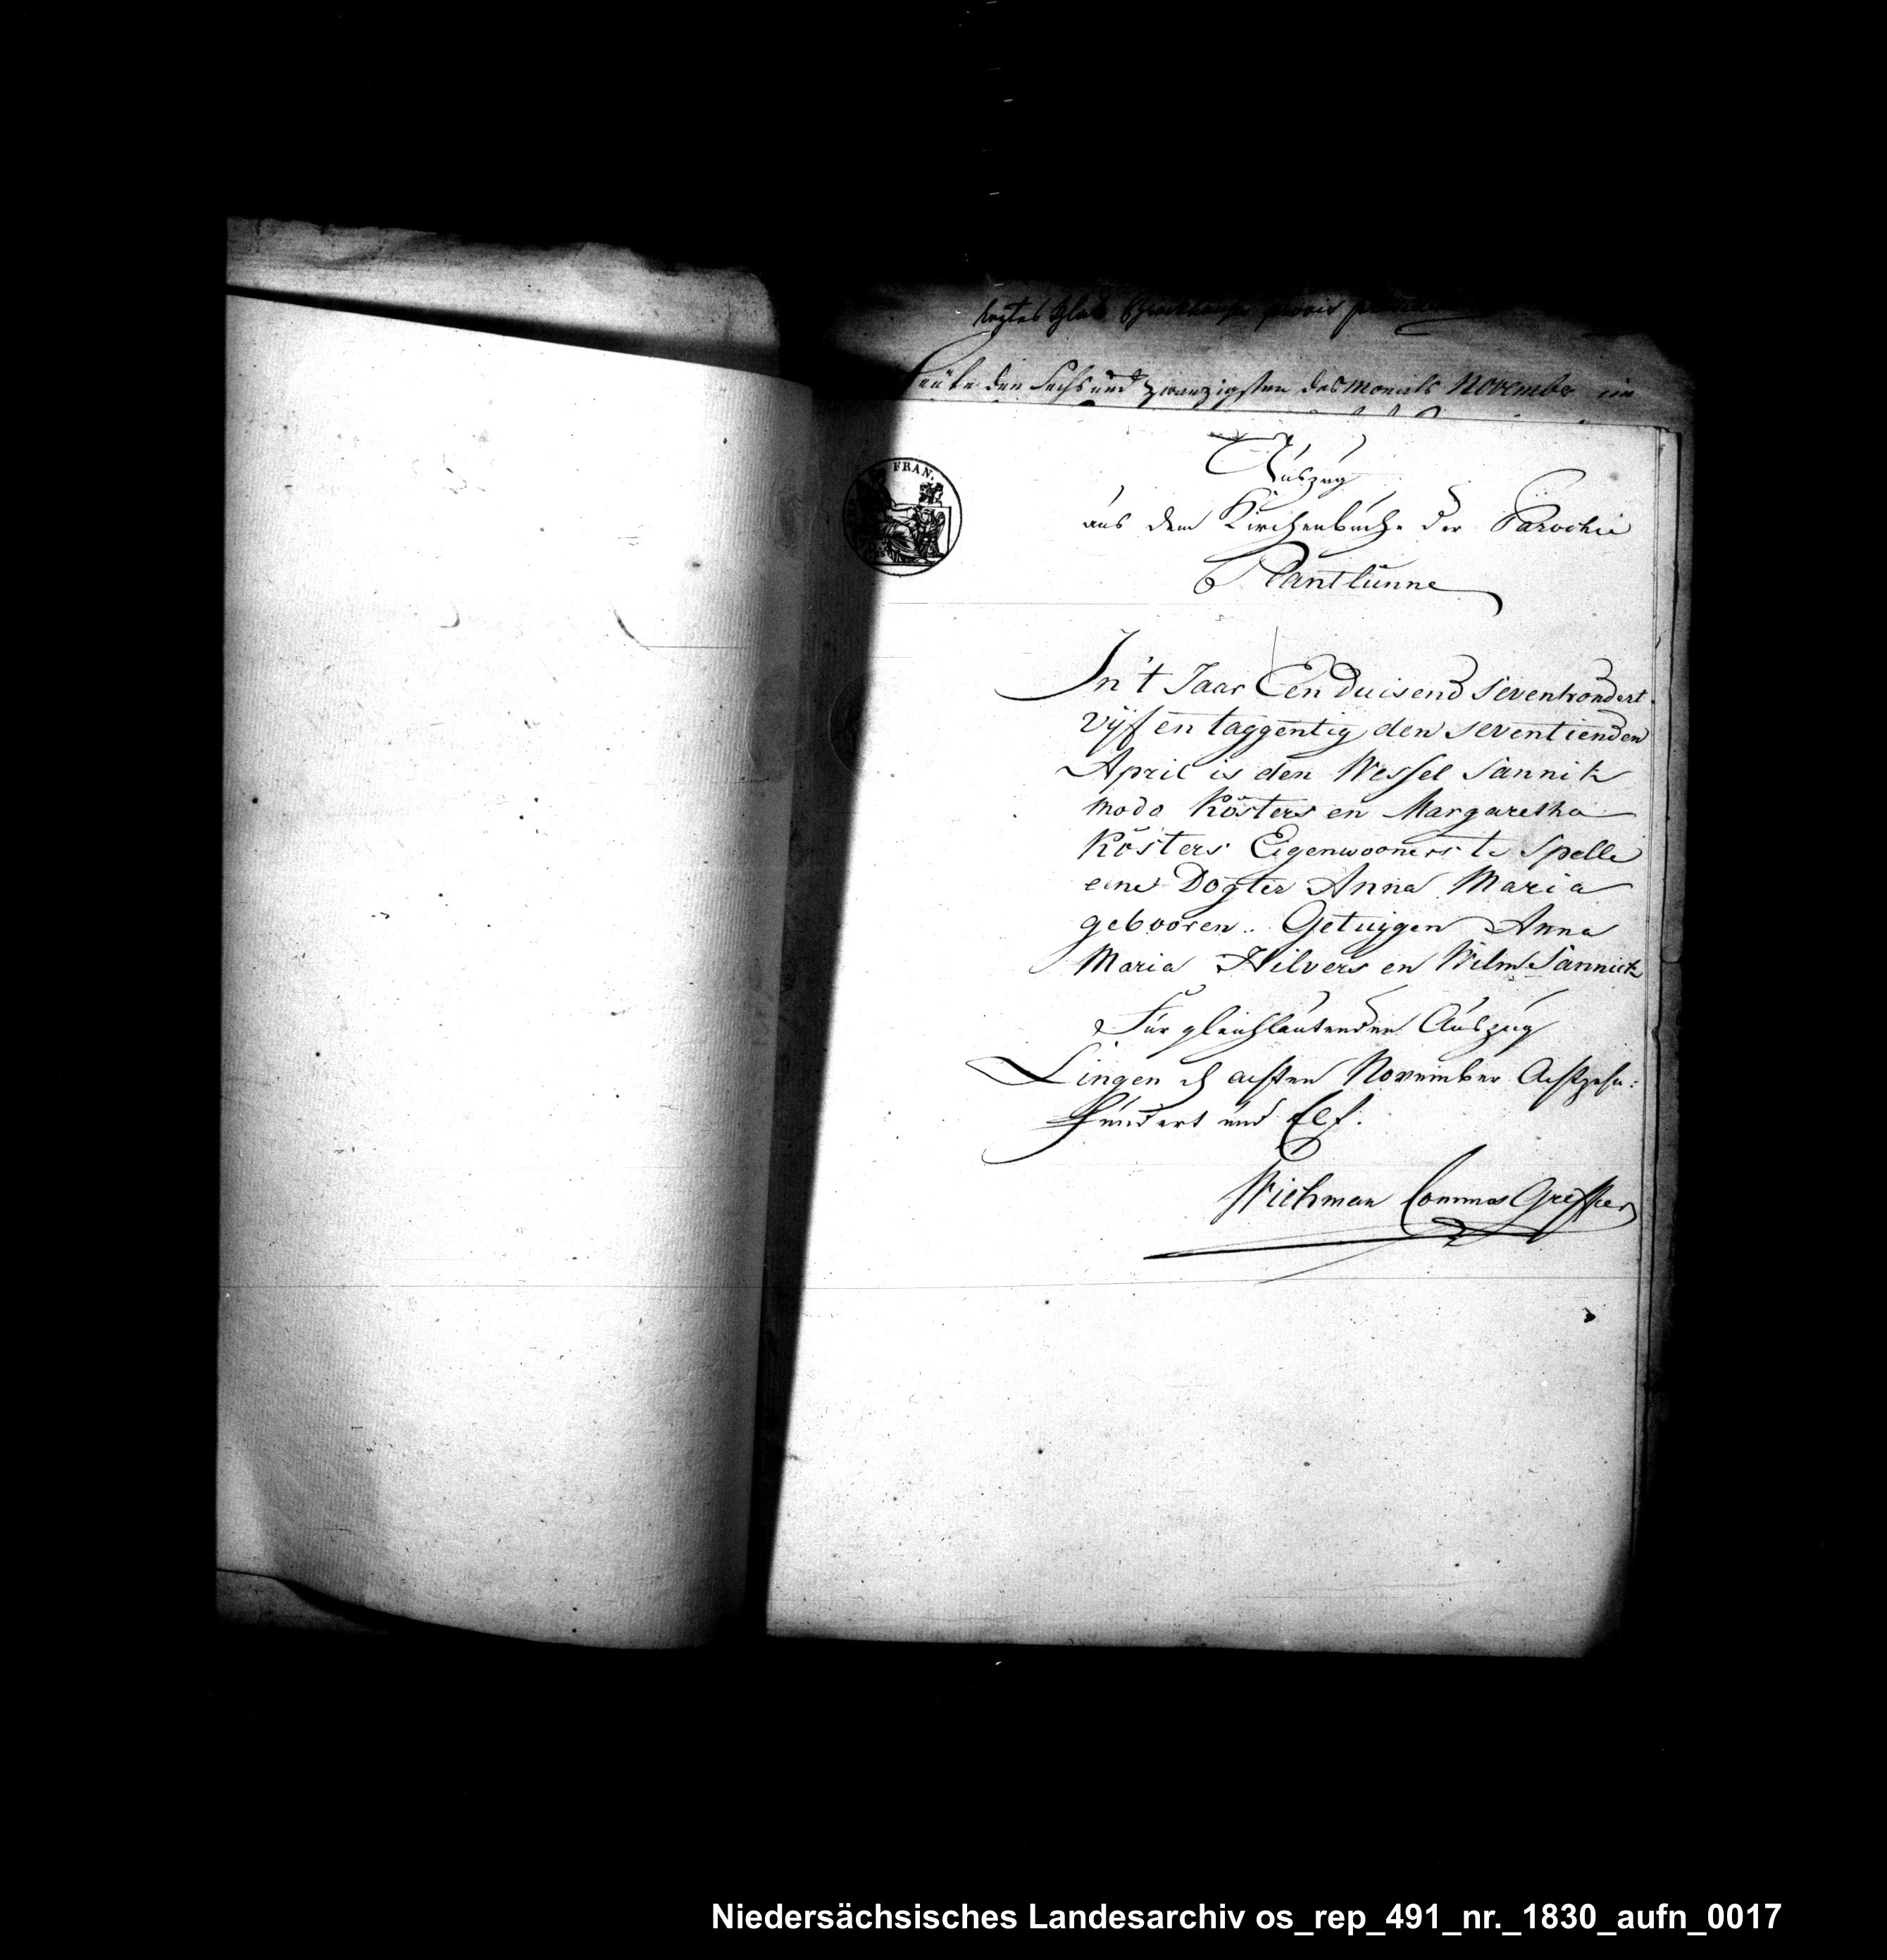 Heute den Sechs und zwanzigsten des Monats November im
FRAN.
Auszug
aus dem Kirchenbuche der Parochie
Plantlünne
In't Jaar Een duisend sevenhondert
vijf en taggentig den seventienden
April is den Wessel Sannik
modo Kösters en Margaretha
Kösters Eigenwooners te Spelle
eene Dogter Anna Maria
gebooren.. Getuijgen Anna
Maria Hilvers en Wilm Sannick
Für gleichlautenden Auszug
Lingen d achten November Achtzehn:
hundert und Elf.
Wichman Commis Greffier
Niedersächsisches Landesarchiv os_rep_491_nr._1830_aufn_0017